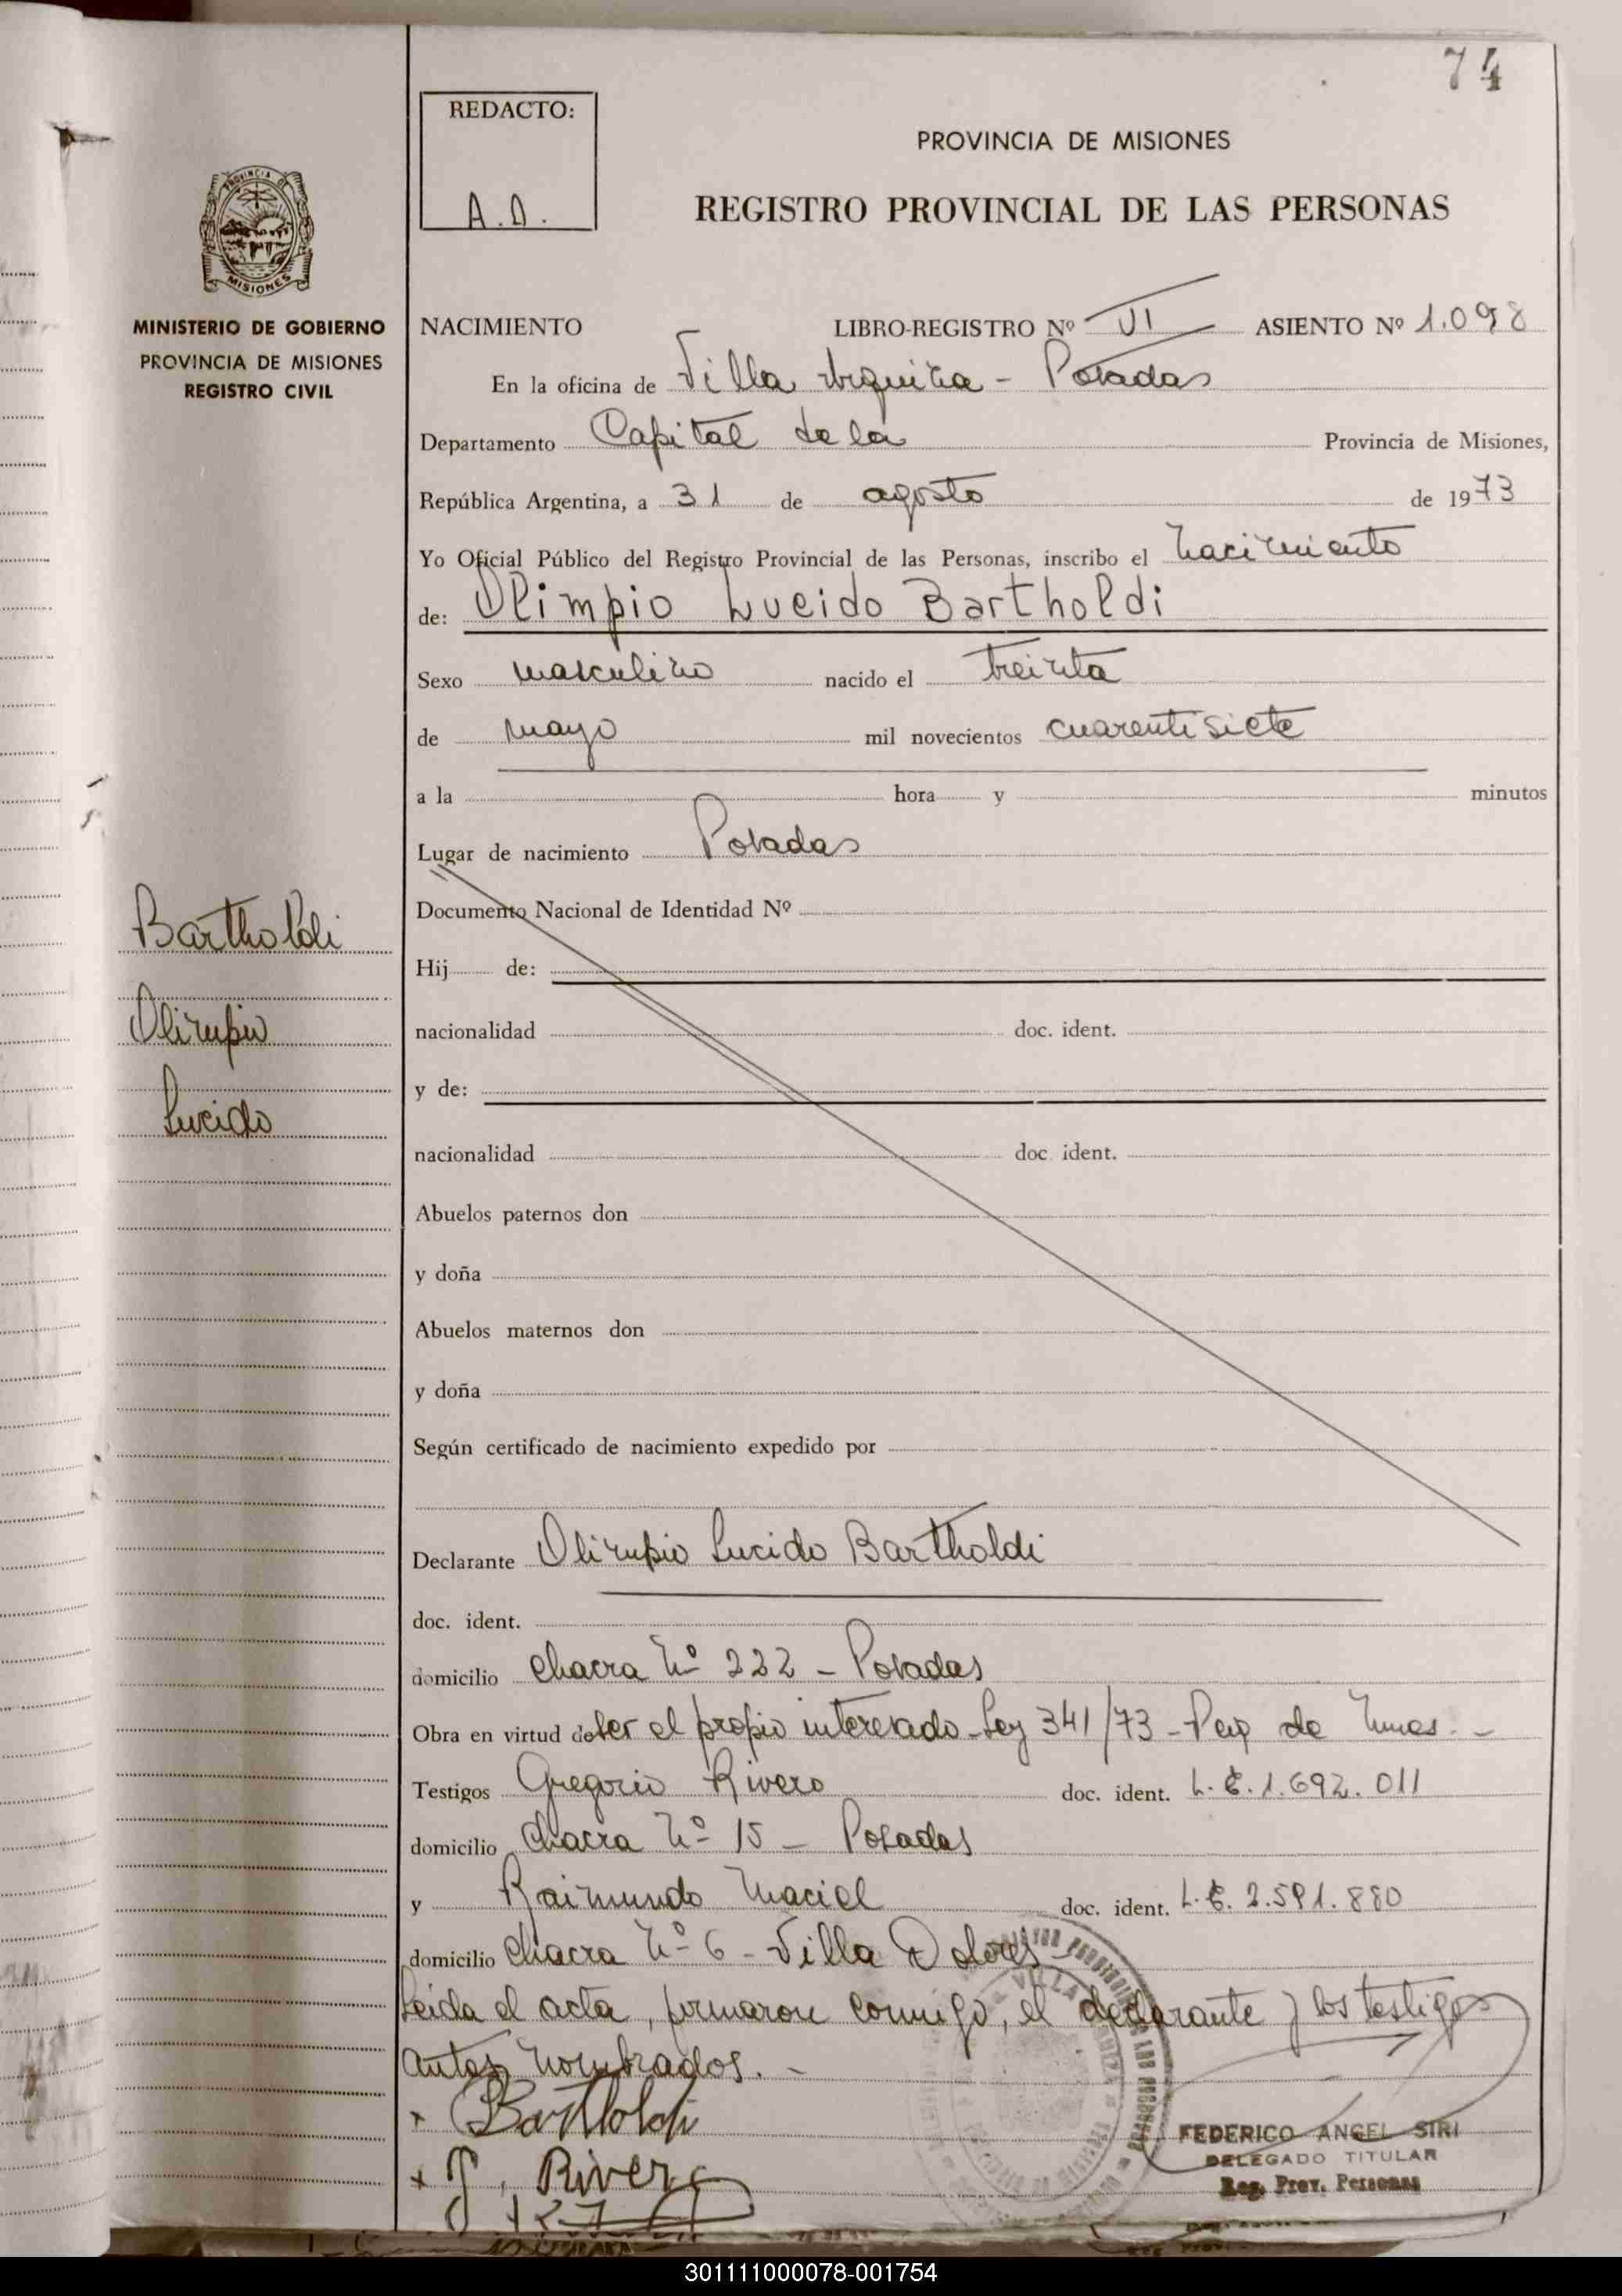 74
REDACTO:
A.D.
PROVINCIA DE MISIONES
REGISTRO PROVINCIAL DE LAS PERSONAS
PROVINCIA DE
MISIONES
MINISTERIO DE GOBIERNO
PROVINCIA DE MISIONES
REGISTRO CIVIL
NACIMIENTO LIBRO-REGISTRO Nº VI ASIENTO Nº 1.098
En la oficina de Villa Urquiza - Posadas
Departamento Capital de la Provincia de Misiones,
República Argentina, a 31 de agosto de 1973
Yo Oficial Público del Registro Provincial de las Personas, inscribo el nacimiento
de: Olimpio Lucido Bartholdi
Sexo masculino nacido el treinta
de mayo mil novecientos cuarentisiete
a la hora y minutos
Lugar de nacimiento Posadas
Documento Nacional de Identidad Nº
Hij de:
nacionalidad doc. ident.
y de:
nacionalidad doc. ident.
Abuelos paternos don
y doña
Abuelos maternos don
y doña
Según certificado de nacimiento expedido por
Bartholdi
Olimpio
Lucido
Declarante Olimpio Lucido Bartholdi
doc. ident.
domicilio chacra Nº 222 - Posadas
Obra en virtud de ser el propio interesado - Ley 341/73 - de
Testigos Gregorio Rivero doc. ident. L.E. 1.692.011
domicilio chacra Nº 15 - Posadas
y Raimundo Maciel doc. ident. L.E. 2.591.880
domicilio chacra Nº 6 - Villa Dolores
Leída el acta, firmaron conmigo, el declarante y los testigos
antes nombrados. -
x Bartholdi
FEDERICO ANGEL SIRI
DELEGADO TITULAR
Reg. Prov. Personas
x G. Rivero
301111000078-001754